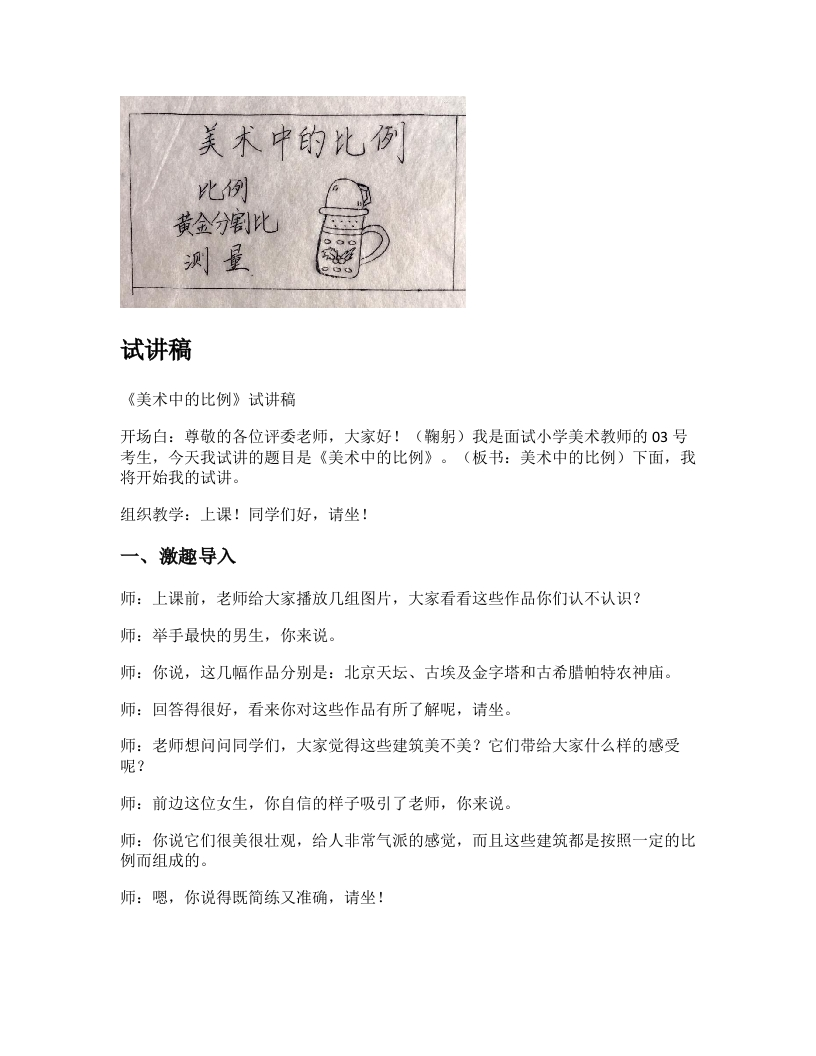 美术中的比例
比例
黄金分割比
测量
试讲稿
《美术中的比例》试讲稿
开场白：尊敬的各位评委老师，大家好！（鞠躬）我是面试小学美术教师的 03 号
考生，今天我试讲的题目是《美术中的比例》。（板书：美术中的比例）下面，我
将开始我的试讲。
组织教学：上课！同学们好，请坐！
一、激趣导入
师：上课前，老师给大家播放几组图片，大家看看这些作品你们认不认识？
师：举手最快的男生，你来说。
师：你说，这几幅作品分别是：北京天坛、古埃及金字塔和古希腊帕特农神庙。
师：回答得很好，看来你对这些作品有所了解呢，请坐。
师：老师想问问同学们，大家觉得这些建筑美不美？它们带给大家什么样的感受
呢？
师：前边这位女生，你自信的样子吸引了老师，你来说。
师：你说它们很美很壮观，给人非常气派的感觉，而且这些建筑都是按照一定的比
例而组成的。
师：嗯，你说得既简练又准确，请坐！